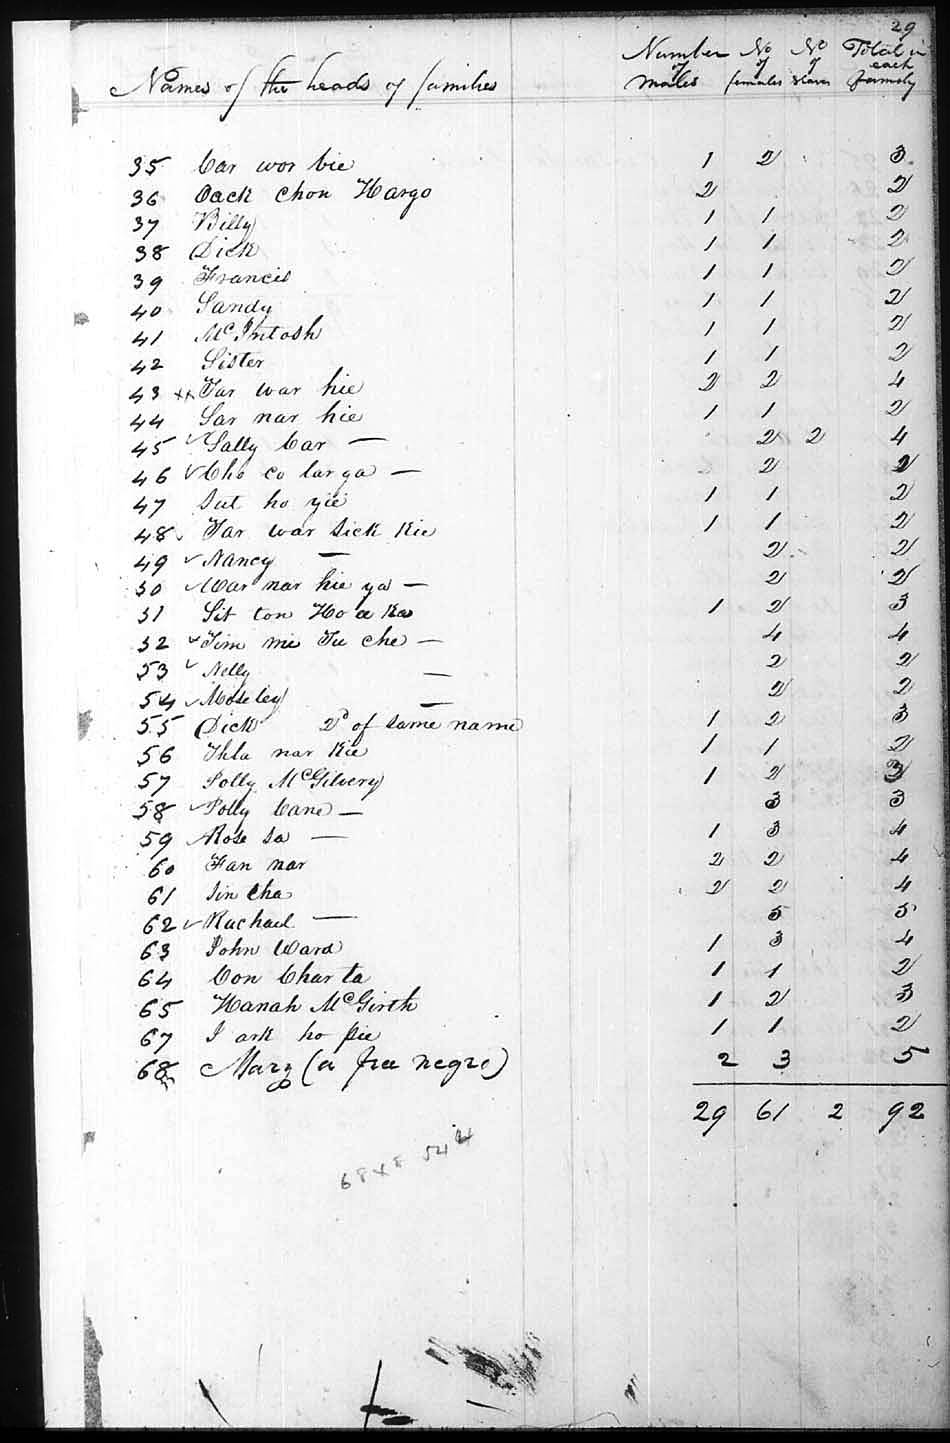 29
Names of the heads of families Number of males No of females No of slaves Total in each family
35 Car wor bie 1 2 3
36 Oack chon Hargo 2 2
37 Billy 1 1 2
38 Dick 1 1 2
39 Francis 1 1 2
40 Sandy 1 1 2
41 McIntosh 1 1 2
42 Sister 1 1 2
43 xx Tar war hie 2 2 4
44 Sar nar hie 1 1 2
45 ✓ Sally Car — 2 2 4
46 ✓ Cho co lar ga — 2 2
47 Sut ho yie 1 1 2
48 ✓ Far war sick kie 1 1 2
49 ✓ Nancy — 2 2
50 ✓ War nar hie ya — 2 2
51 Sit ton Ho a Ka 1 2 3
52 ✓ Tim mi Tu che — 4 4
53 ✓ Nelly — 2 2
54 ✓ Moseley — 2 2
55 Dick 2d of same name 1 2 3
56 Thla nar kie 1 1 2
57 Polly McGilvery 1 2 3
58 ✓ Polly Cane — 3 3
59 Rose sa — 1 3 4
60 Fan nar 2 2 4
61 Sin cha 2 2 4
62 ✓ Rachael — 5 5
63 John Ward 1 3 4
64 Con Char ta 1 1 2
65 Hanah McGirth 1 2 3
67 I ark ho pie 1 1 2
68 Mary (a free negro) 2 3 5
29 61 2 92
68 x 8 544